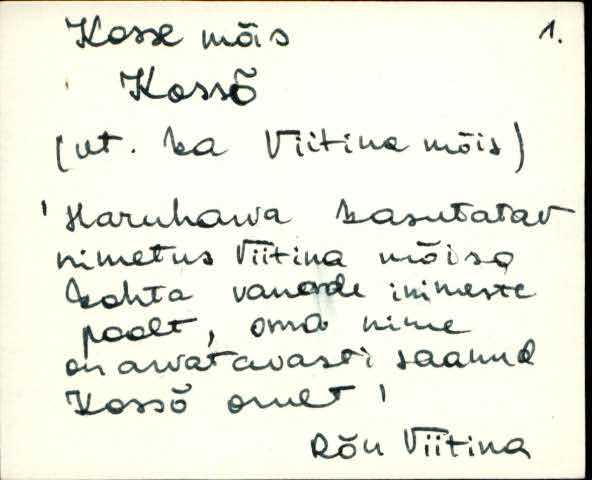 Kosse mõis 1.
Kossõ
(vt. ka Viitina mõis)
' Haruharva kasutatav
nimetus Viitina mõisa
kohta vanade inimeste
poolt, oma nime
on arvatavasti saanud
Kossõ
Rõu Viitina